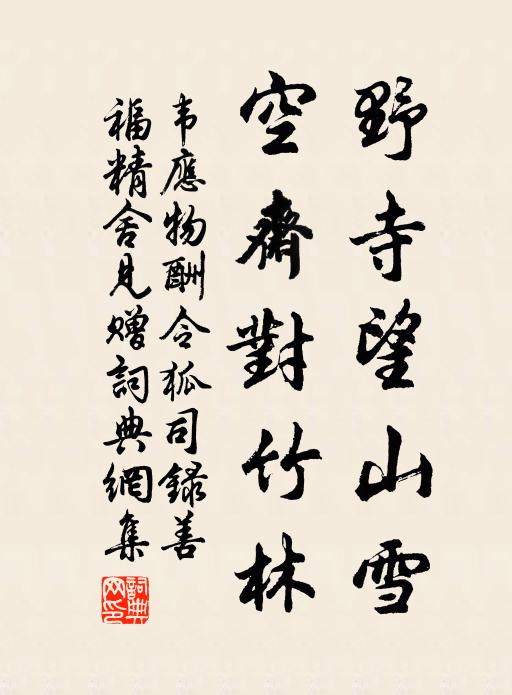 野寺望山雪
空齋對竹林
韦應物酬令狐司錄善
福精舍見贈詞典網集
詞典网印